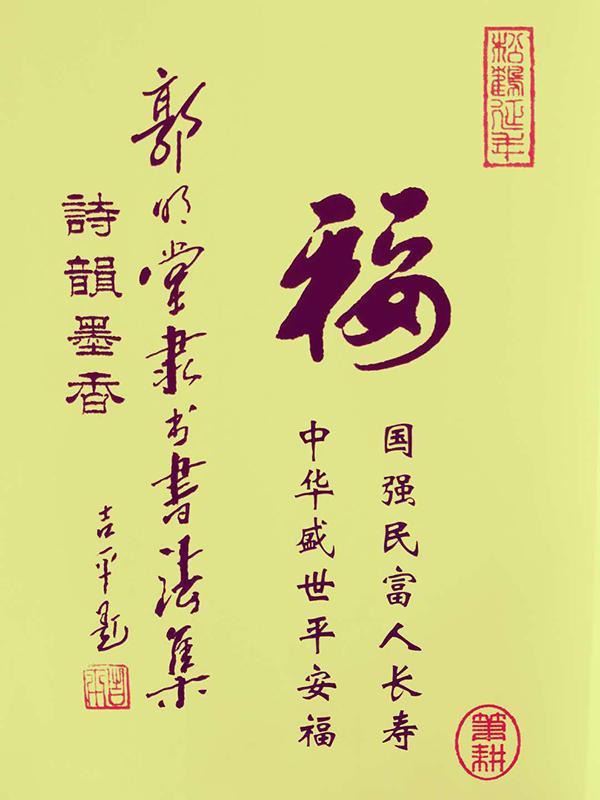 松鶴延年
福
国强民富人长寿
中华盛世平安福
筆耕
郭明堂隶书書法集
詩韻墨香
吉平题
吉平